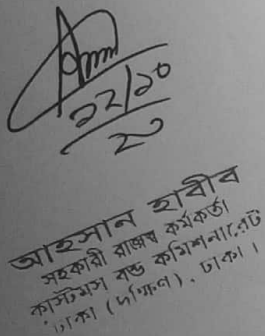 ২২/১০
২০
আহসান হাবীব
সহকারী রাজস্ব কর্মকর্তা
কাস্টমস বন্ড কমিশনারেট
ঢাকা (দক্ষিণ), ঢাকা।